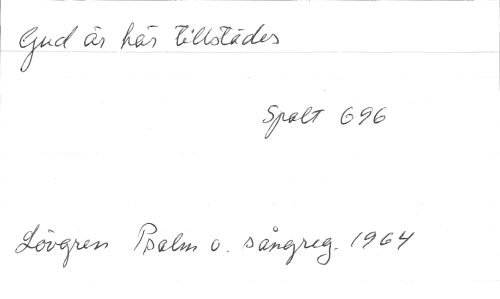 Gud är här tillstädes
Spalt 696
Lövgren Psalm o. sångreg. 1964